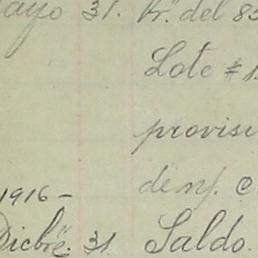 ayo 31. Pr. del 85
Lote # 1
provisi
de nf. C
1916-
Dicbre. 31 Saldo.